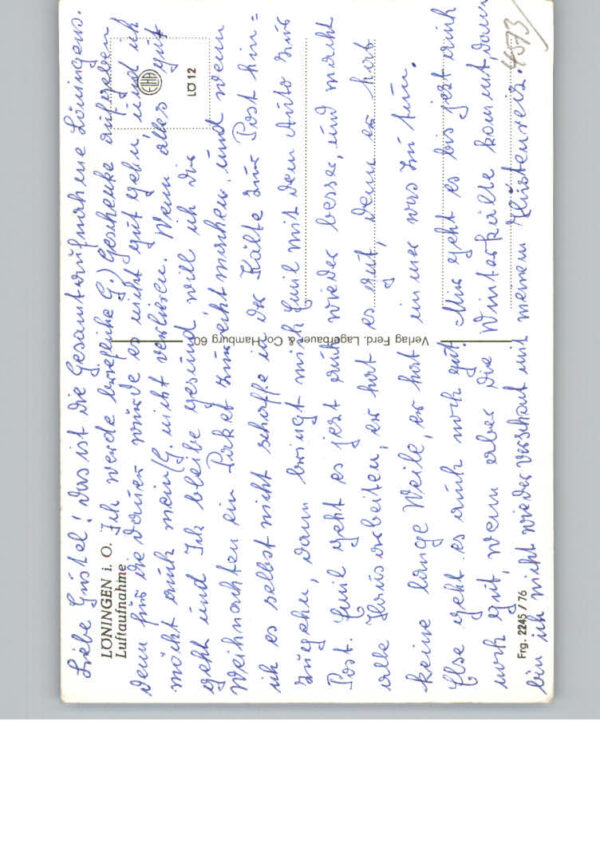 Liebe Gustel! Das ist die Gesamtaufnahme Löningens.
LÖNINGEN i. O.
Luftaufnahme
Ich werde briefliche G.) Geschenke aufgeben
denn für die Dauer würde es nicht gut gehn und ich
möcht auch mein G. nicht verlieren. Wenn alles gut
geht und Ich bleibe gesund will ich die
Weihnachten ein Paket zurechtmachen, und wenn
ich es selbst nicht schaffe in der Kälte zur Post hin=
zugehn, dann bringt mich Emil mit dem Auto zur
Post. Emil geht es jezt auch wieder besser, und macht
alle Hausarbeiten, er hat es gut, denn er hat
keine lange Weile, er hat immer was zu tun.
Else geht es auch noch gut! Mir geht es bis jezt auch
noch gut, wenn aber die Winterkälte kommt dann
bin ich nicht wieder verschont mit meinem Hustenreiz.
4573/
LÖ 12
Verlag Ferd. Lagerbauer & Co, Hamburg 60
Frg. 2245 / 76